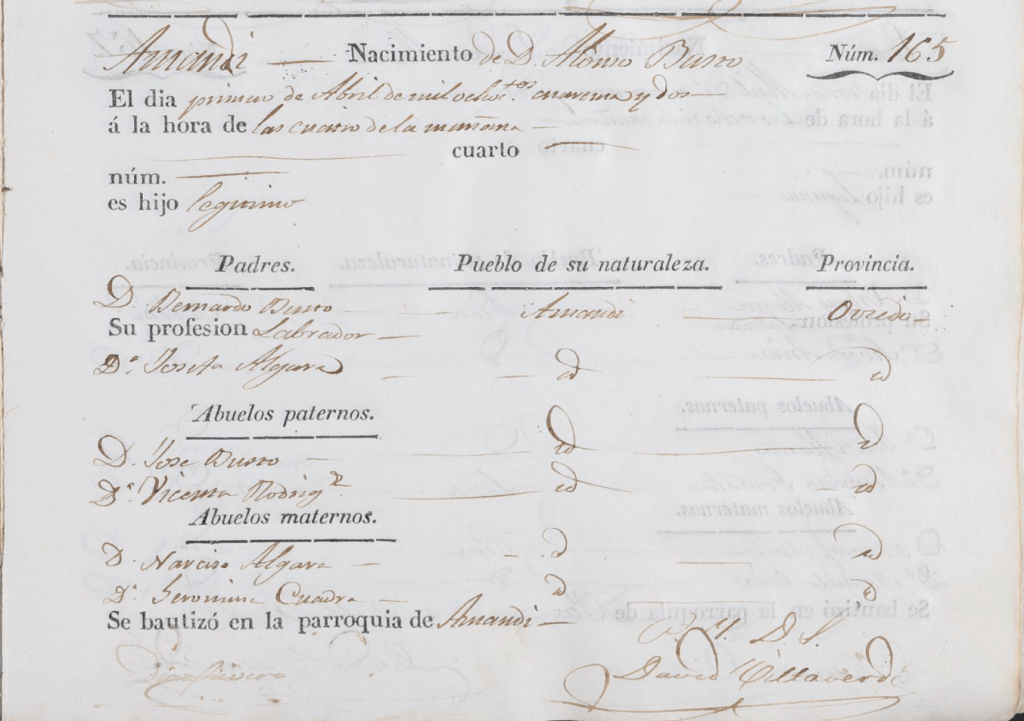 Amandi — Nacimiento de D. Alonso Busto Núm. 165
El dia primero de Abril de mil ochoc.tos cuarenta y dos
á la hora de las cuatro de la mañana
cuarto
núm.
es hijo legitimo
Padres. Pueblo de su naturaleza. Provincia.
D. Bernardo Busto — Amandi — Oviedo
Su profesion Labrador
D.ª Josefa Algara — id — id
Abuelos paternos.
D. Jose Busto — id — id
D.ª Vicenta Rodrig.z — id — id
Abuelos maternos.
D. Narciso Algara — id — id
D.ª Geronima Cuadra — id — id
Se bautizó en la parroquia de Amandi
David Villaverde